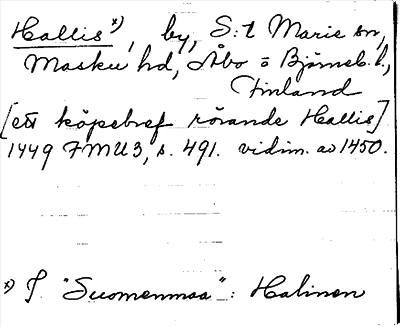 Hallis x), by, S:t Marie sn,
Masku hd, Åbo o Björneb. l.,
Finland
[ett köpebref rörande Hallis]
1449 FMU 3, s. 491. vidim. av 1450.
x) I "Suomenmaa": Halinen